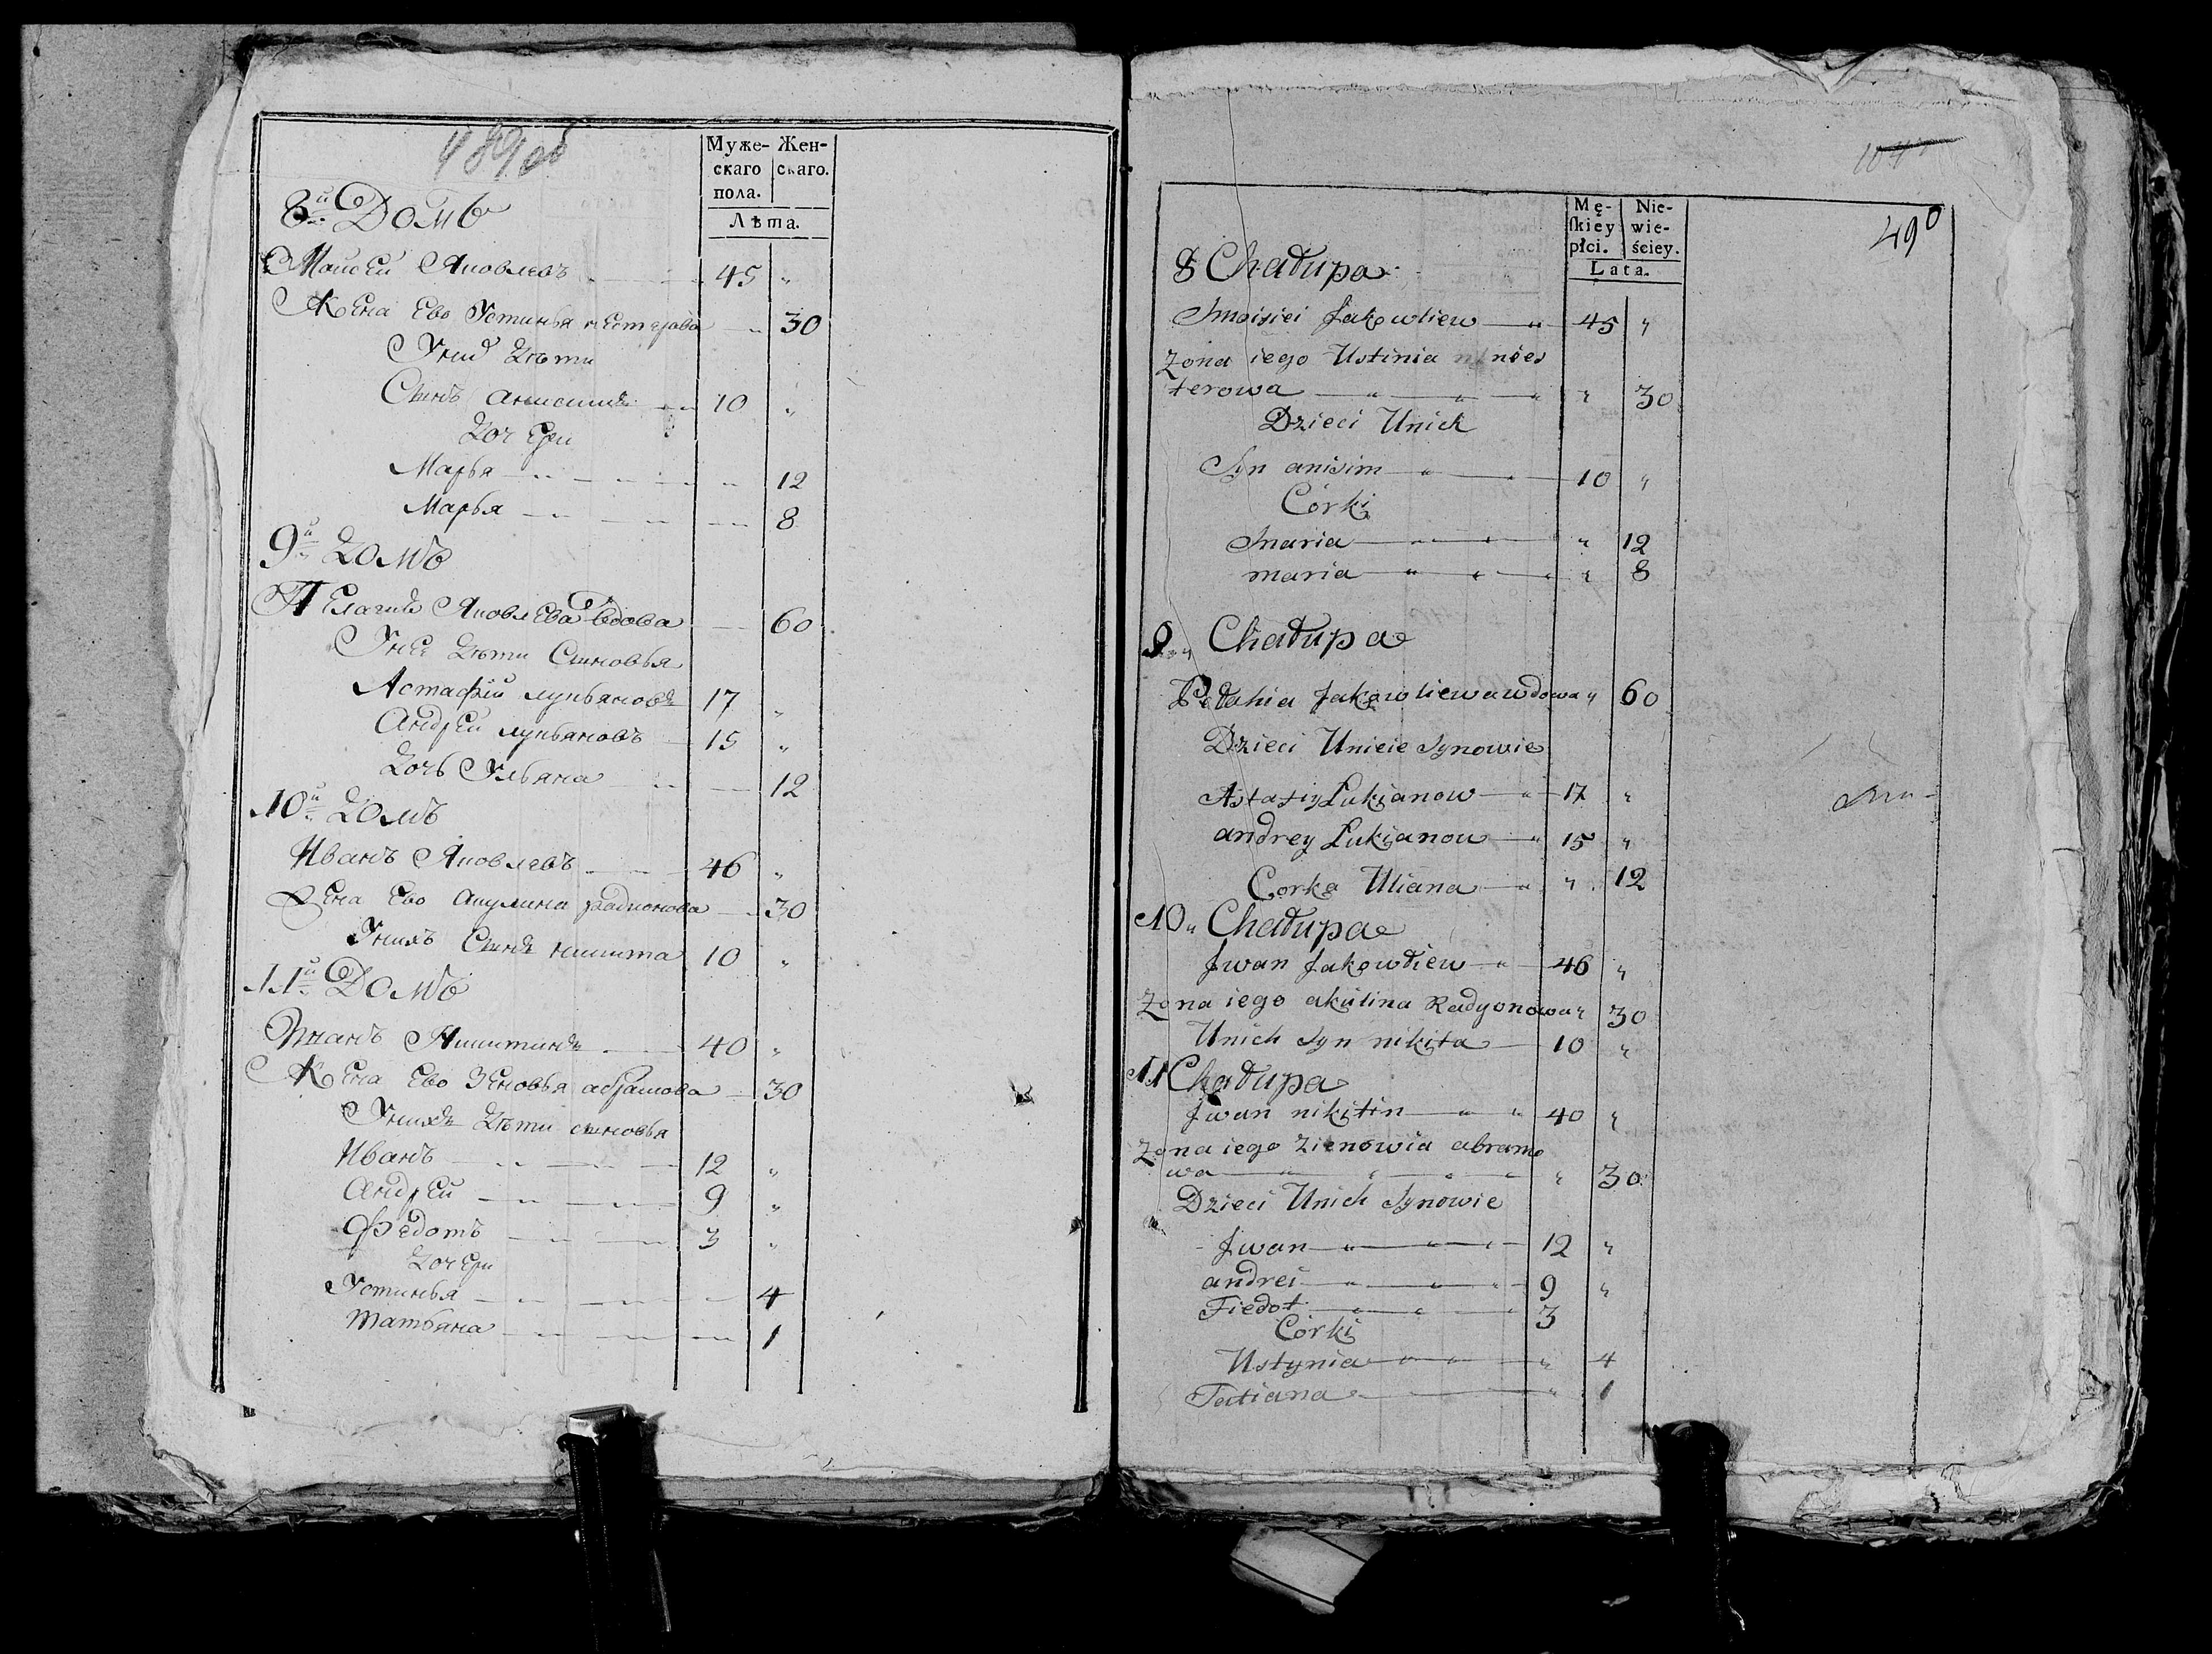 489 об
Муже- Жен-
скаго скаго.
пола.
Лѣта.
8й Домъ
Моисей Яковлевъ 45 "
Жена Ево Устинья нестерова " 30
Уних Дѣти
Сынъ анисимъ 10 "
Дочери
Марья " 12
Марья " 8
9й Домъ
Пелагия Яковлева вдова 60
Унее Дѣти Сыновья
Астафий лукьяновъ 17 "
Андрей лукьяновъ 15 "
Дочь Ульяна 12
10й Домъ
Иванъ Яковлевъ 46 "
Жена Ево акулина радионова 30
Унихъ Сынъ никита 10 "
11й Домъ
Иванъ Никитинъ 40 "
Жена Ево Зеновья абрамова 30
Унихъ Дѣти сыновья
Иванъ 12 "
Андрей 9 "
Федотъ 3 "
Дочери
Устинья 4
Татьяна 1
490
Mę- Nie-
ſkiey wie-
płci. ściey.
Lata.
8 Chałupa
Moisiei Jakowliew 45 "
Żona iego Ustinia nies
terowa " 30
Dzieci Unich
Syn anisim 10 "
Córki
Maria " 12
maria " 8
9 " Chałupa
Pełahia Jakowliewa wdowa " 60
Dzieci Unieie Synowie
Astafiy Łukianow 17 "
andrey Łukianow 15 "
Corka Uliana " 12
10 " Chałupa
Jwan Jakowłiew 46 "
Żona iego akulina Radyonowa " 30
Unich Syn nikita 10 "
11 Chałupa
Jwan nikitin 40 "
Żona iego Zienowia abramo
wa " 30
Dzieci Unich Synowie
Jwan 12 "
andrei 9 "
Fiedot 3
Córki
Ustynia " 4
Tatiana " 1